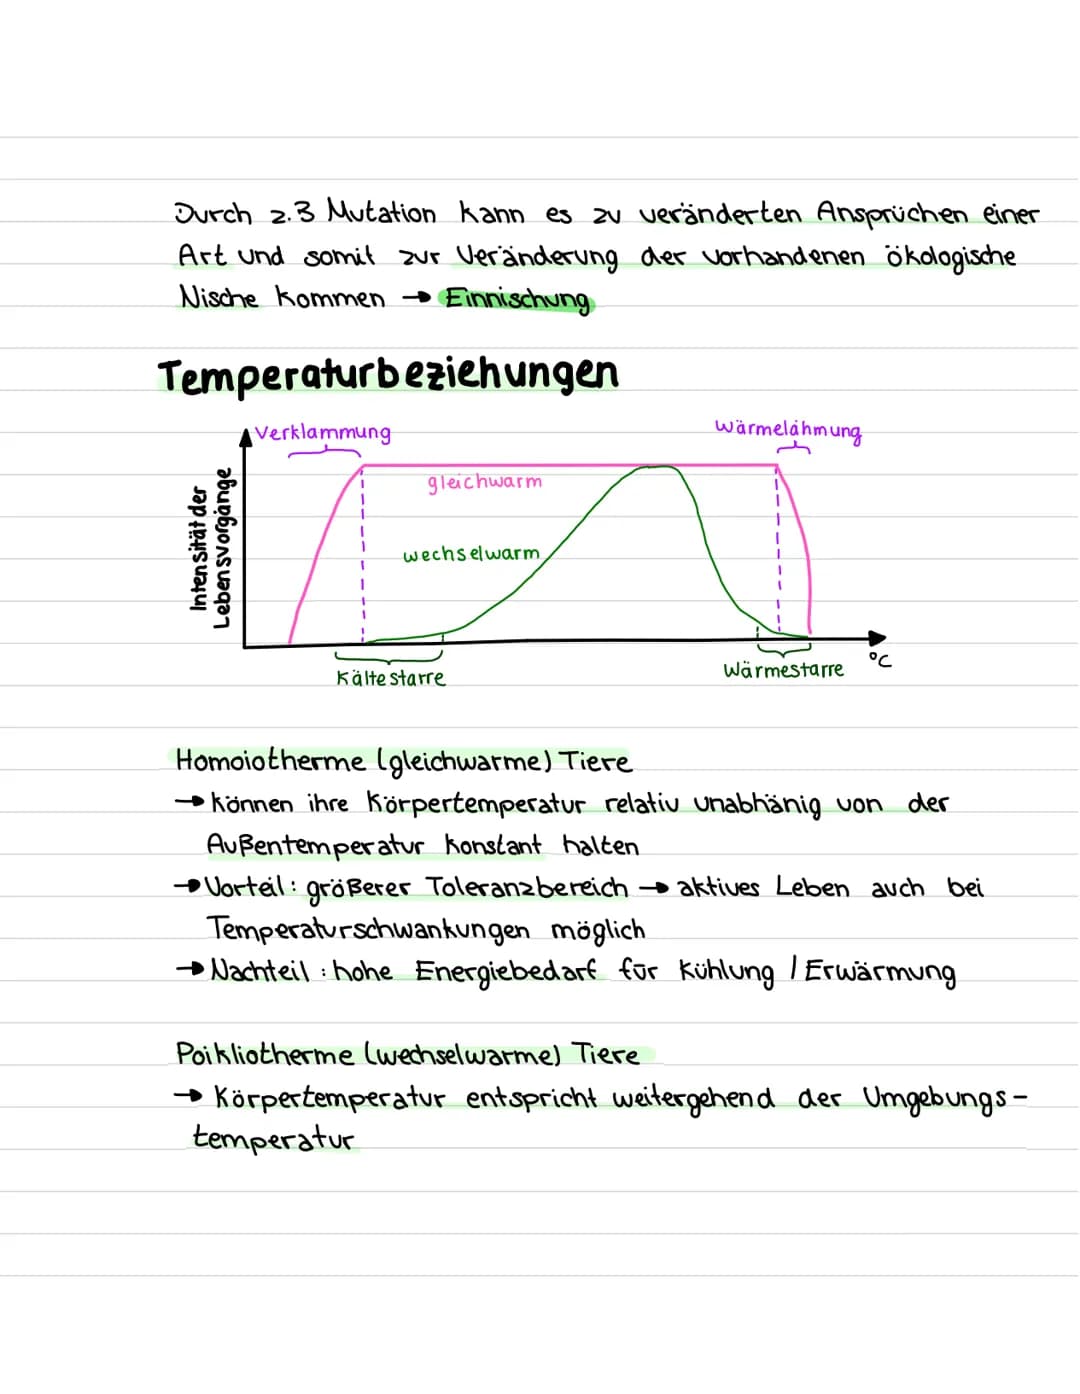 Durch z.B Mutation kann es zu veränderten Ansprüchen einer
Art und somit zur Veränderung der vorhandenen ökologische
Nische kommen → Einnischung
Temperaturbeziehungen
Verklammung
Wärmelähmung
Intensität der
Lebensvorgänge
gleichwarm
wechselwarm
°C
Kältestarre
Wärmestarre
Homoiotherme (gleichwarme) Tiere
→ können ihre Körpertemperatur relativ unabhänig von der
Außentemperatur konstant halten
→ Vorteil: größerer Toleranzbereich → aktives Leben auch bei
Temperaturschwankungen möglich
→ Nachteil: hohe Energiebedarf für Kühlung / Erwärmung
Poikliotherme (wechselwarme) Tiere
→ Körpertemperatur entspricht weitergehend der Umgebungs-
temperatur